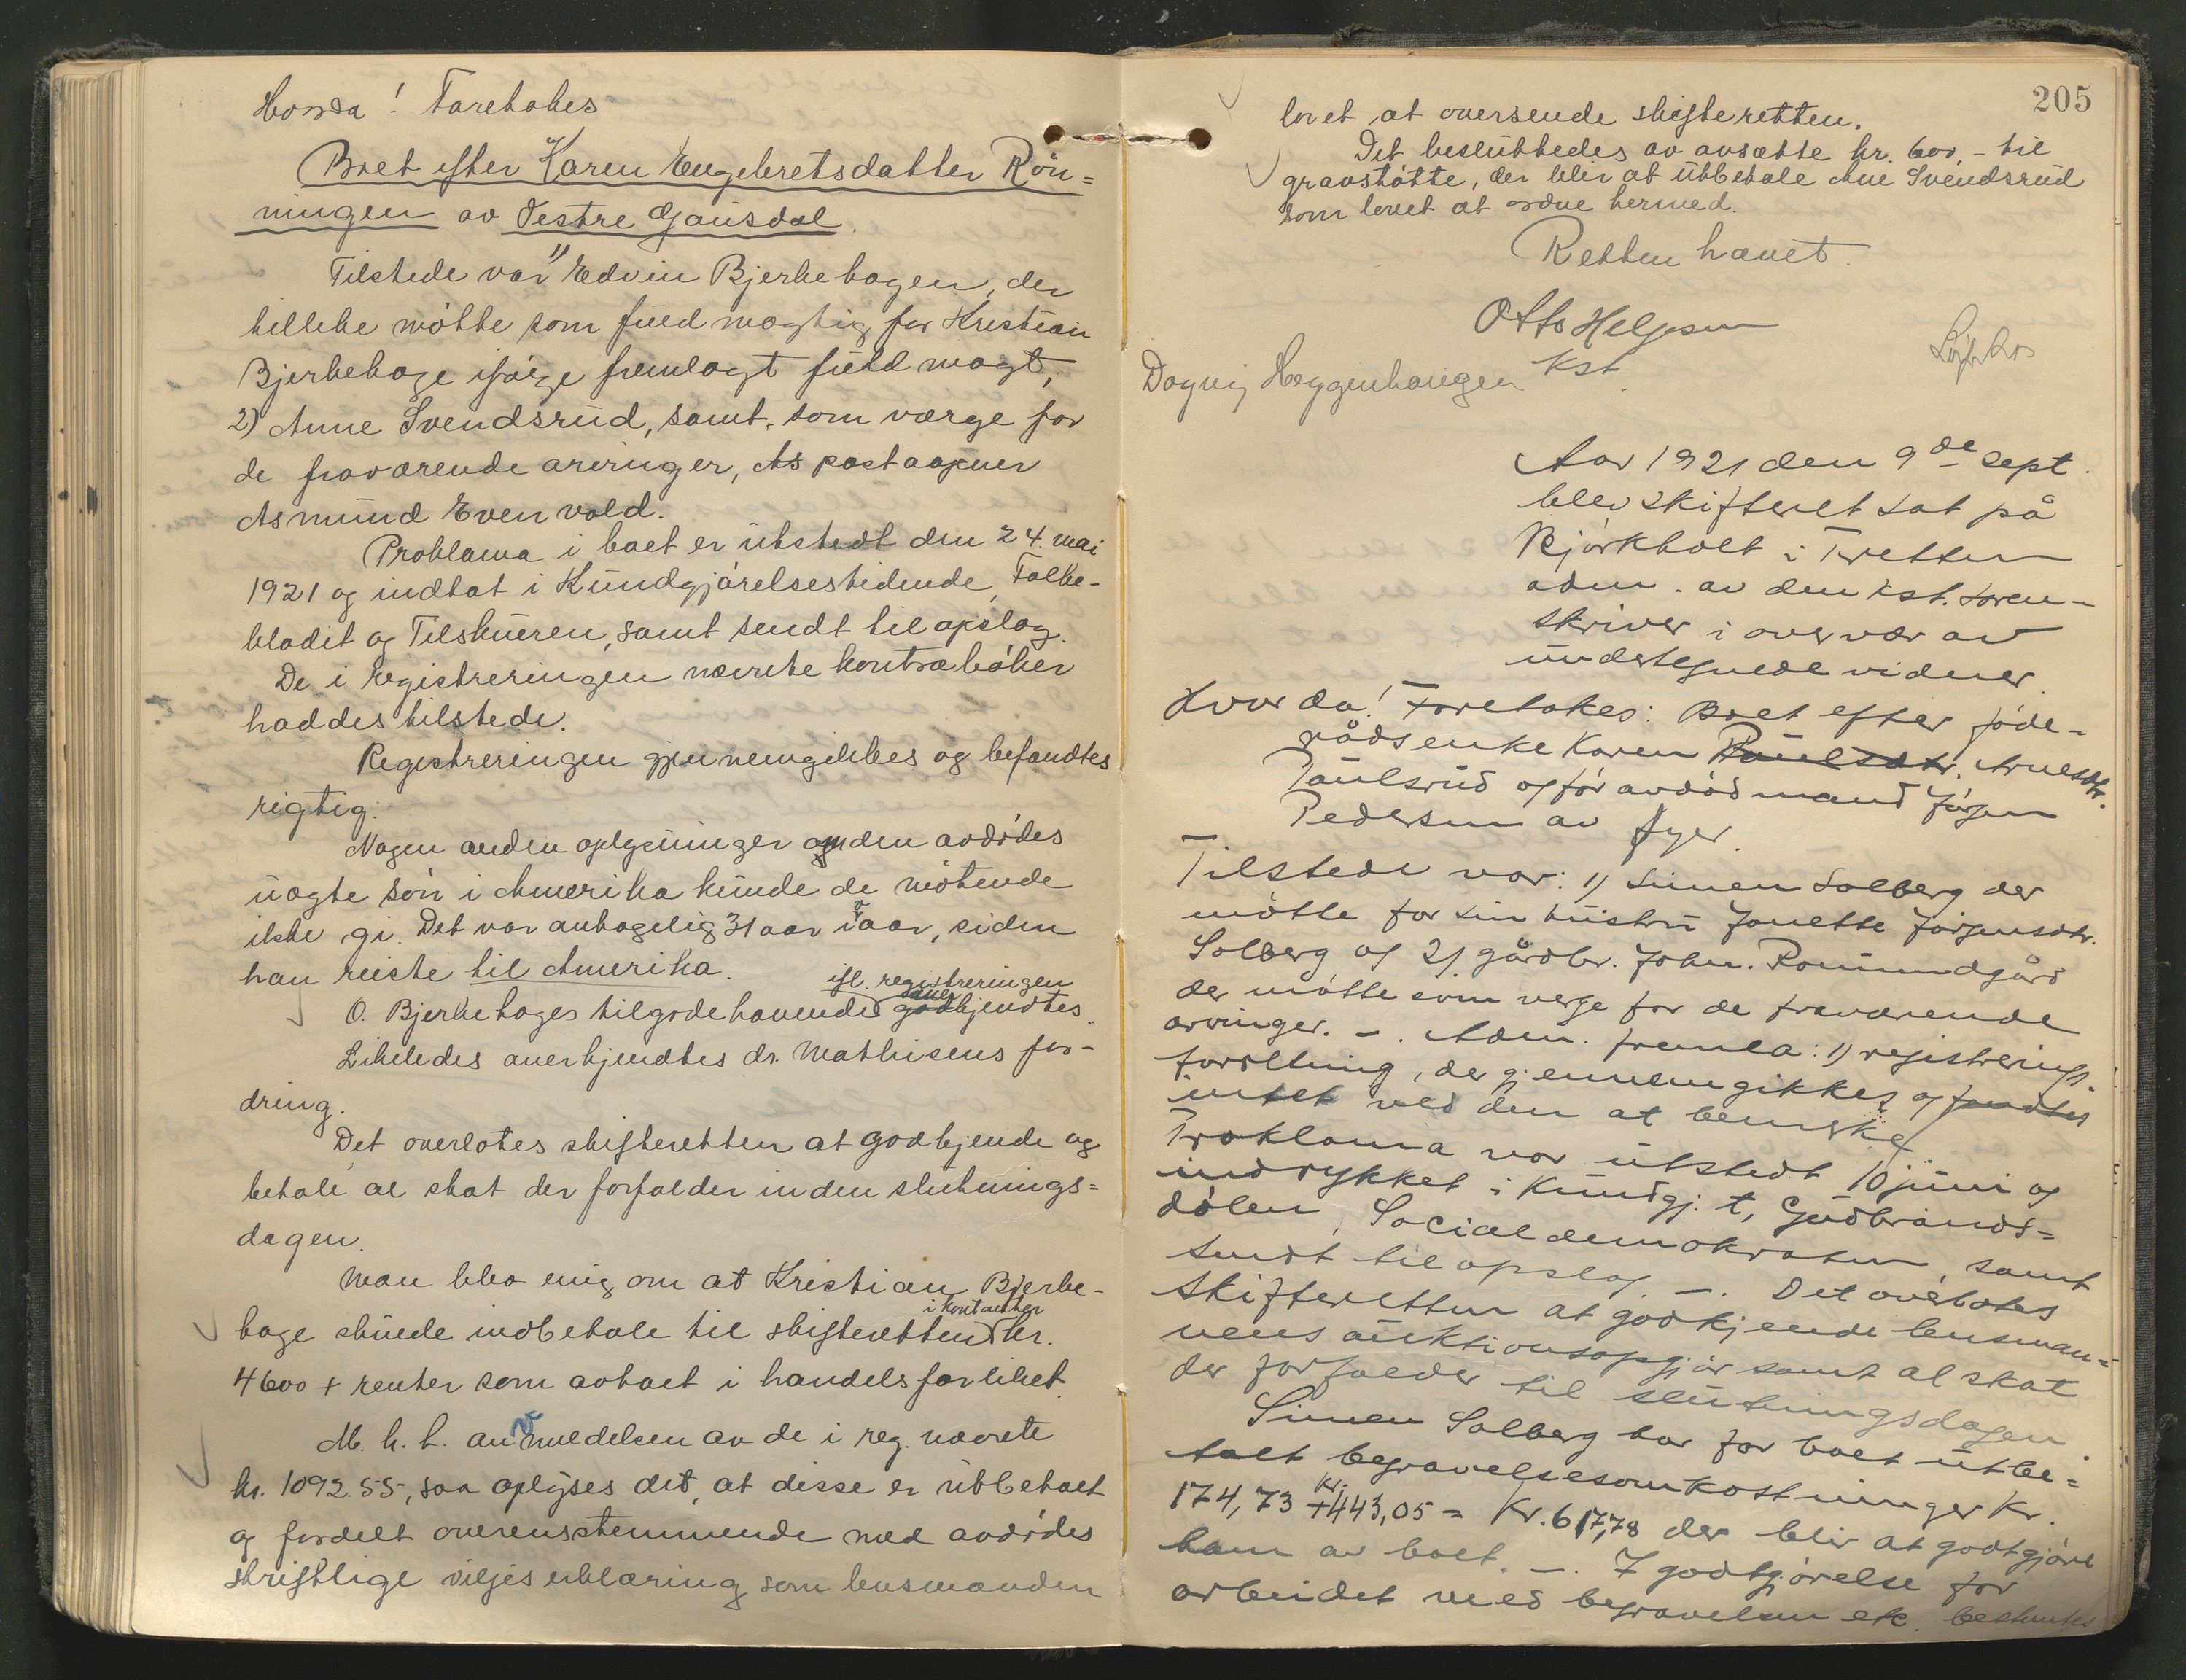 Hvorda! Foretokes
Boet efter Karen Engebretsdatter Rön=
ningen av Vestre Gausdal.
Tilstede var 1) Edvin Bjerkehagen, der
tillike møtte som fuldmægtig for Kristian
Bjerkehage ifølge fremlagt fuldmagt,
2) Anne Svendsrud, samt som værge for
de fraværende arvinger, As postaapner
Asmund Evenvold.
Proklama i boet er utstedt den 24. mai
1921 og indtat i Kundgjørelsestidende, Folke-
bladet og Tilskueren, samt sendt til opslag.
De i registreringen nævnte kontrabøker
haddes tilstede.
Registreringen gjennemgikkes og befandtes
rigtig.
Nogen anden oplysninger om den avdødes
uægte søn i Amerika kunde de møtende
ikke gi. Det var antagelig 31 aar i aar, siden
han reiste til Amerika.
ifl. registreringen
O. Bjerkehages tilgodehavende godkjendtes.
Likeledes anerkjendtes dr. Mathisens for-
dring.
Det overlotes skifteretten at godkjende og
betale al skat der forfalder inden slutnings=
dagen.
Man blev enig om at Kristian Bjerke-
i kontanter
hage skulde indbetale til skifteretten kr.
4600 + renter som avtalt i handelsforliket.
M. h. t. anmeldelsen av de i reg. nævnte
kr. 1092.55, saa oplyses det, at disse er utbetalt
og fordelt overensstemmende med avdødes
skriftlige viljeserklæring som lensmanden
205
lovet at oversende skifteretten.
Det besluttedes av avsætte kr. 600,- til
gravstøtte, der blir at utbetale Ane Svendsrud
som lovet at ordne hermed.
Retten hævet.
Otto Helgesen
Kst.
Dagny Heggenhaugen
Aar 1921 den 9de sept.
blev skifteret sat på
Bjørkholt i Tretten
adm. av den kst. soren-
skriver i overvær av
undertegnede vidner.
Hvorda! Foretakes: Boet efter føde-
rådsenke Karen Paulsdtr. Arnesdtr.
Paulsrud og før avdød mand Jørgen
Pedersen av Øyer.
Tilstede var: 1) Simen Solberg der
møtte for sin hustru Jonette Jørgensdtr.
Solberg og 2) gårdbr. John. Romundgård
der møtte som verge for de fraværende
arvinger. -. Adm. fremla: 1) registrerings-
forretning, der gjennemgikkes og fandtes
intet ved den at bemerke.
Proklama var utstedt 10 juni og
indrykket i Kundgj. t, Gudbrands=
dølen, Socialdemokraten, samt
sendt til opslag. -. Det overlotes
Skifteretten at godkjende lensman=
nens auktionsopgjør samt al skat
der forfalder til slutningsdagen.
Simen Solberg har for boet utbe=
talt begravelsesomkostninger Kr.
174,73 + kr. 443,05 = Kr. 617,78 der blir at godtgjøre
ham av boet. -. I godtgjørelse for
arbeidet med begravelsen etc. bestemtes